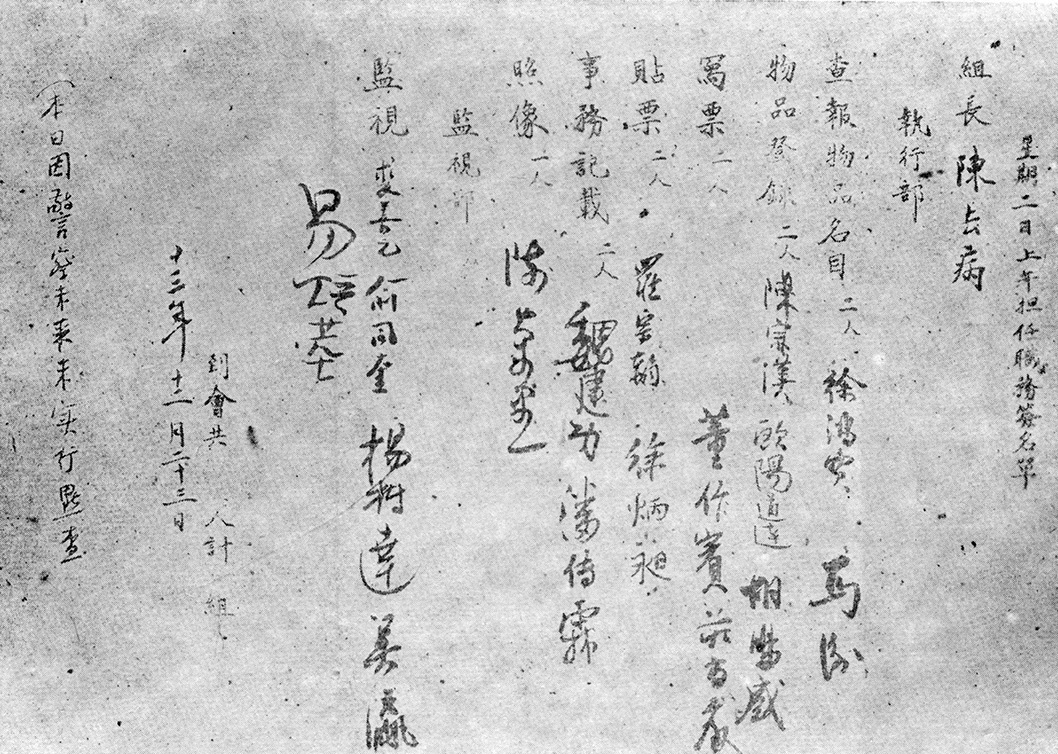 星期二日上午担任職務簽名單
組長 陳去病
執行部
查報物品名目 二人 徐鴻寶 馬衡
物品登錄 二人 陳宗漢 歐陽道達 胡鳴盛
寫票 二人 董作賓 莊尚嚴
貼票 二人 羅宗翰 徐炳昶
事務記載 二人 魏建功 潘傳霖
照像 一人 陳萬里
監視部
監視 裘善元 俞同奎 楊樹達 吳瀛
易培基
到會共 人計 組
十三年十二月二十三日
(本日因警察未來未实行點查